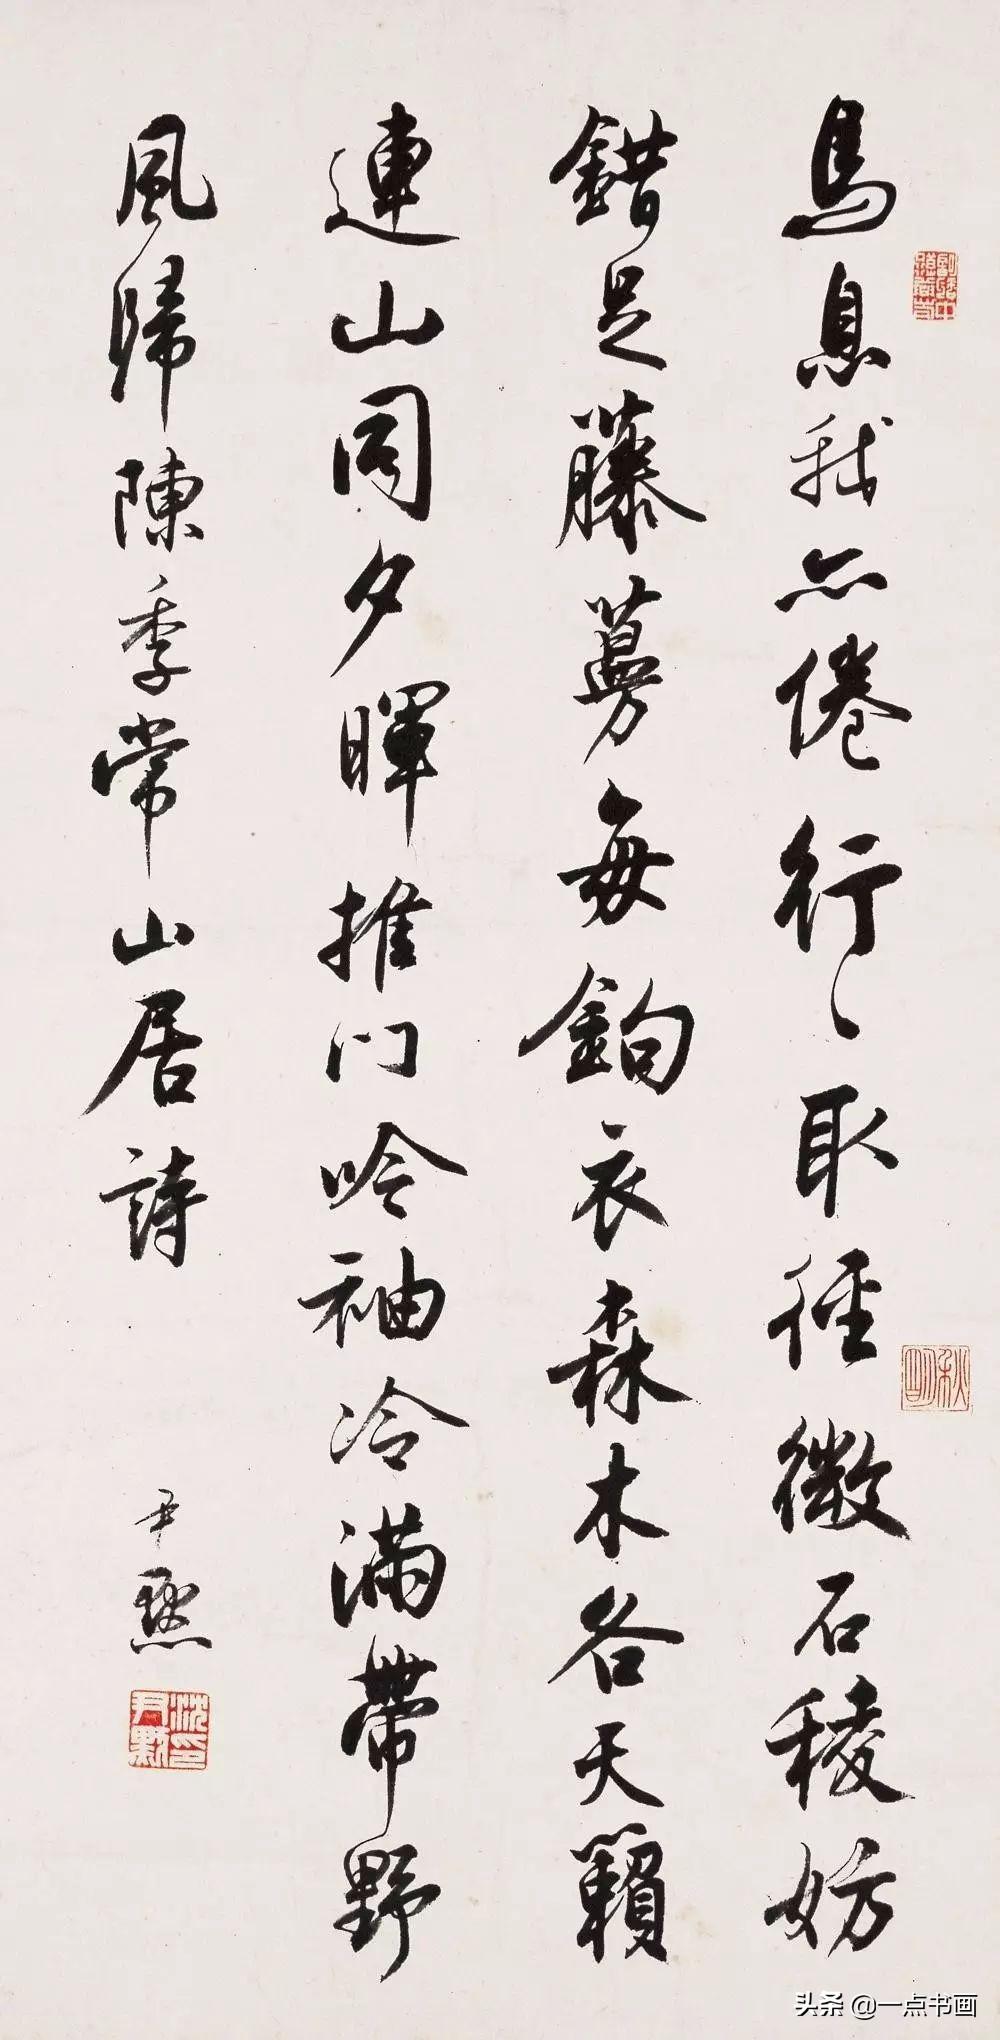 鳥息我亦倦行〻取徑微石稜妨
錯足藤蔓每鉤衣森木各天籟
連山同夕暉推門吟袖冷滿帶野
風歸陳季常山居詩
尹默
沈尹默印
秋明
头条 @一点书画